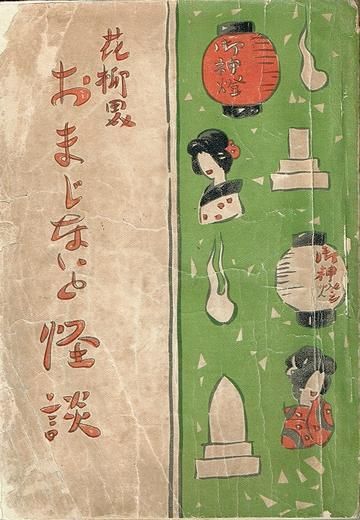 花柳男女
おまじないと怪談
御神燈
御神燈